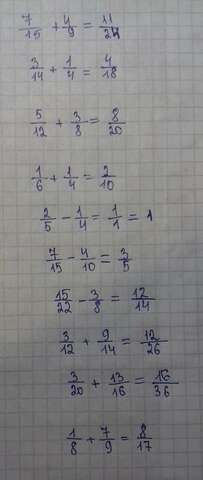 7/15 + 4/9 = 11/24
3/14 + 1/4 = 4/18
5/12 + 3/8 = 8/20
1/6 + 1/4 = 2/10
2/5 - 1/4 = 1/1 = 1
7/15 - 4/10 = 3/5
15/22 - 3/8 = 12/14
3/12 + 9/14 = 12/26
3/20 + 13/16 = 16/36
1/8 + 7/9 = 8/17